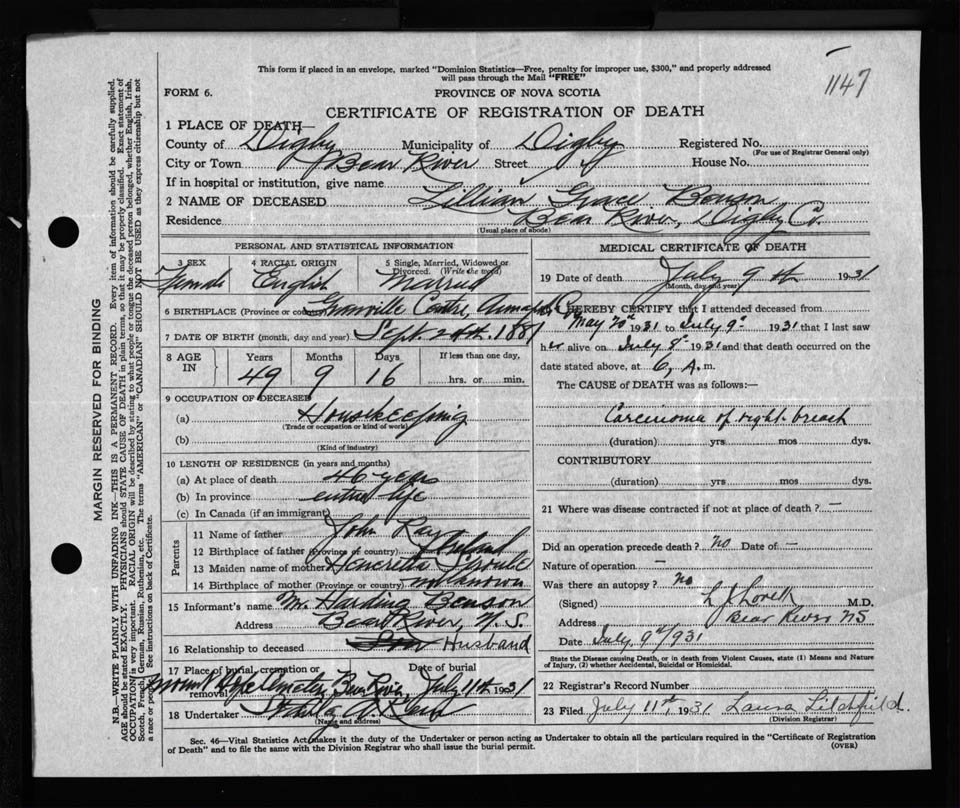 This form if placed in an envelope, marked "Dominion Statistics—Free, penalty for improper use, $300," and properly addressed
will pass through the Mail "FREE"
1147
FORM 6.
PROVINCE OF NOVA SCOTIA
CERTIFICATE OF REGISTRATION OF DEATH
1 PLACE OF DEATH—
County of Digby Municipality of Digby Registered No.
(For use of Registrar General only)
City or Town Bear River Street House No.
If in hospital or institution, give name
2 NAME OF DECEASED Lillian Grace Benson
Residence Bear River, Digby Co.
(Usual place of abode)
PERSONAL AND STATISTICAL INFORMATION
3 SEX 4 RACIAL ORIGIN 5 Single, Married, Widowed or
Divorced. (Write the word)
Female English Married
6 BIRTHPLACE (Province or country) Granville Centre, Annapolis Co
7 DATE OF BIRTH (month, day and year) Sept. 24th. 1881
8 AGE
IN
Years Months Days If less than one day,
49 9 16 hrs. or min.
9 OCCUPATION OF DECEASED
(a) Housekeeping
(Trade or occupation or kind of work)
(b)
(Kind of industry)
10 LENGTH OF RESIDENCE (in years and months)
(a) At place of death 46 years
(b) In province entire life
(c) In Canada (if an immigrant)
Parents
11 Name of father John Ray
12 Birthplace of father (Province or country) Ireland
13 Maiden name of mother Henrietta
14 Birthplace of mother (Province or country) not known
15 Informant's name M. Harding Benson
Address Bear River, N.S.
16 Relationship to deceased Son Husband
17 Place of burial, cremation or Date of burial
removal Mount Hope Cemetery Bear River, July 11th 1931
18 Undertaker A. Reid
(Name and address)
MEDICAL CERTIFICATE OF DEATH
19 Date of death July 9th 1931
(Month, day and year)
I HEREBY CERTIFY that I attended deceased from
May 20th 1931 to July 9th 1931 that I last saw
her alive on July 8th 1931 and that death occurred on the
date stated above, at 6, A.m.
The CAUSE of DEATH was as follows:—
Carcinoma of right breast
(duration) yrs mos dys.
CONTRIBUTORY
(duration) yrs mos dys.
21 Where was disease contracted if not at place of death? —
Did an operation precede death? no Date of —
Nature of operation —
Was there an autopsy? no
(Signed) L J Lovett M.D.
Address Bear River NS
Date July 9th/931
State the Disease causing Death, or in death from Violent Causes, state (1) Means and Nature
of Injury, (2) whether Accidental, Suicidal or Homicidal.
22 Registrar's Record Number
23 Filed July 11th 1931 Laura Litchfield.
(Division Registrar)
Sec. 46—Vital Statistics Act makes it the duty of the Undertaker or person acting as Undertaker to obtain all the particulars required in the "Certificate of Registration
of Death" and to file the same with the Division Registrar who shall issue the burial permit. (OVER)
MARGIN RESERVED FOR BINDING
N.B.—WRITE PLAINLY WITH UNFADING INK—THIS IS A PERMANENT RECORD. Every item of information should be carefully supplied.
AGE should be stated EXACTLY. PHYSICIANS should STATE CAUSE OF DEATH in plain terms, so that it may be properly classified. Exact statement of
OCCUPATION is very important. RACIAL ORIGIN will be described by stating to what people or tongue the deceased person belonged, whether English, Irish,
Scotch, French, German, Russian, Ruthenian, etc. The terms "AMERICAN" or "CANADIAN" SHOULD NOT BE USED as they express citizenship but not
a race or people. See instructions on back of Certificate.